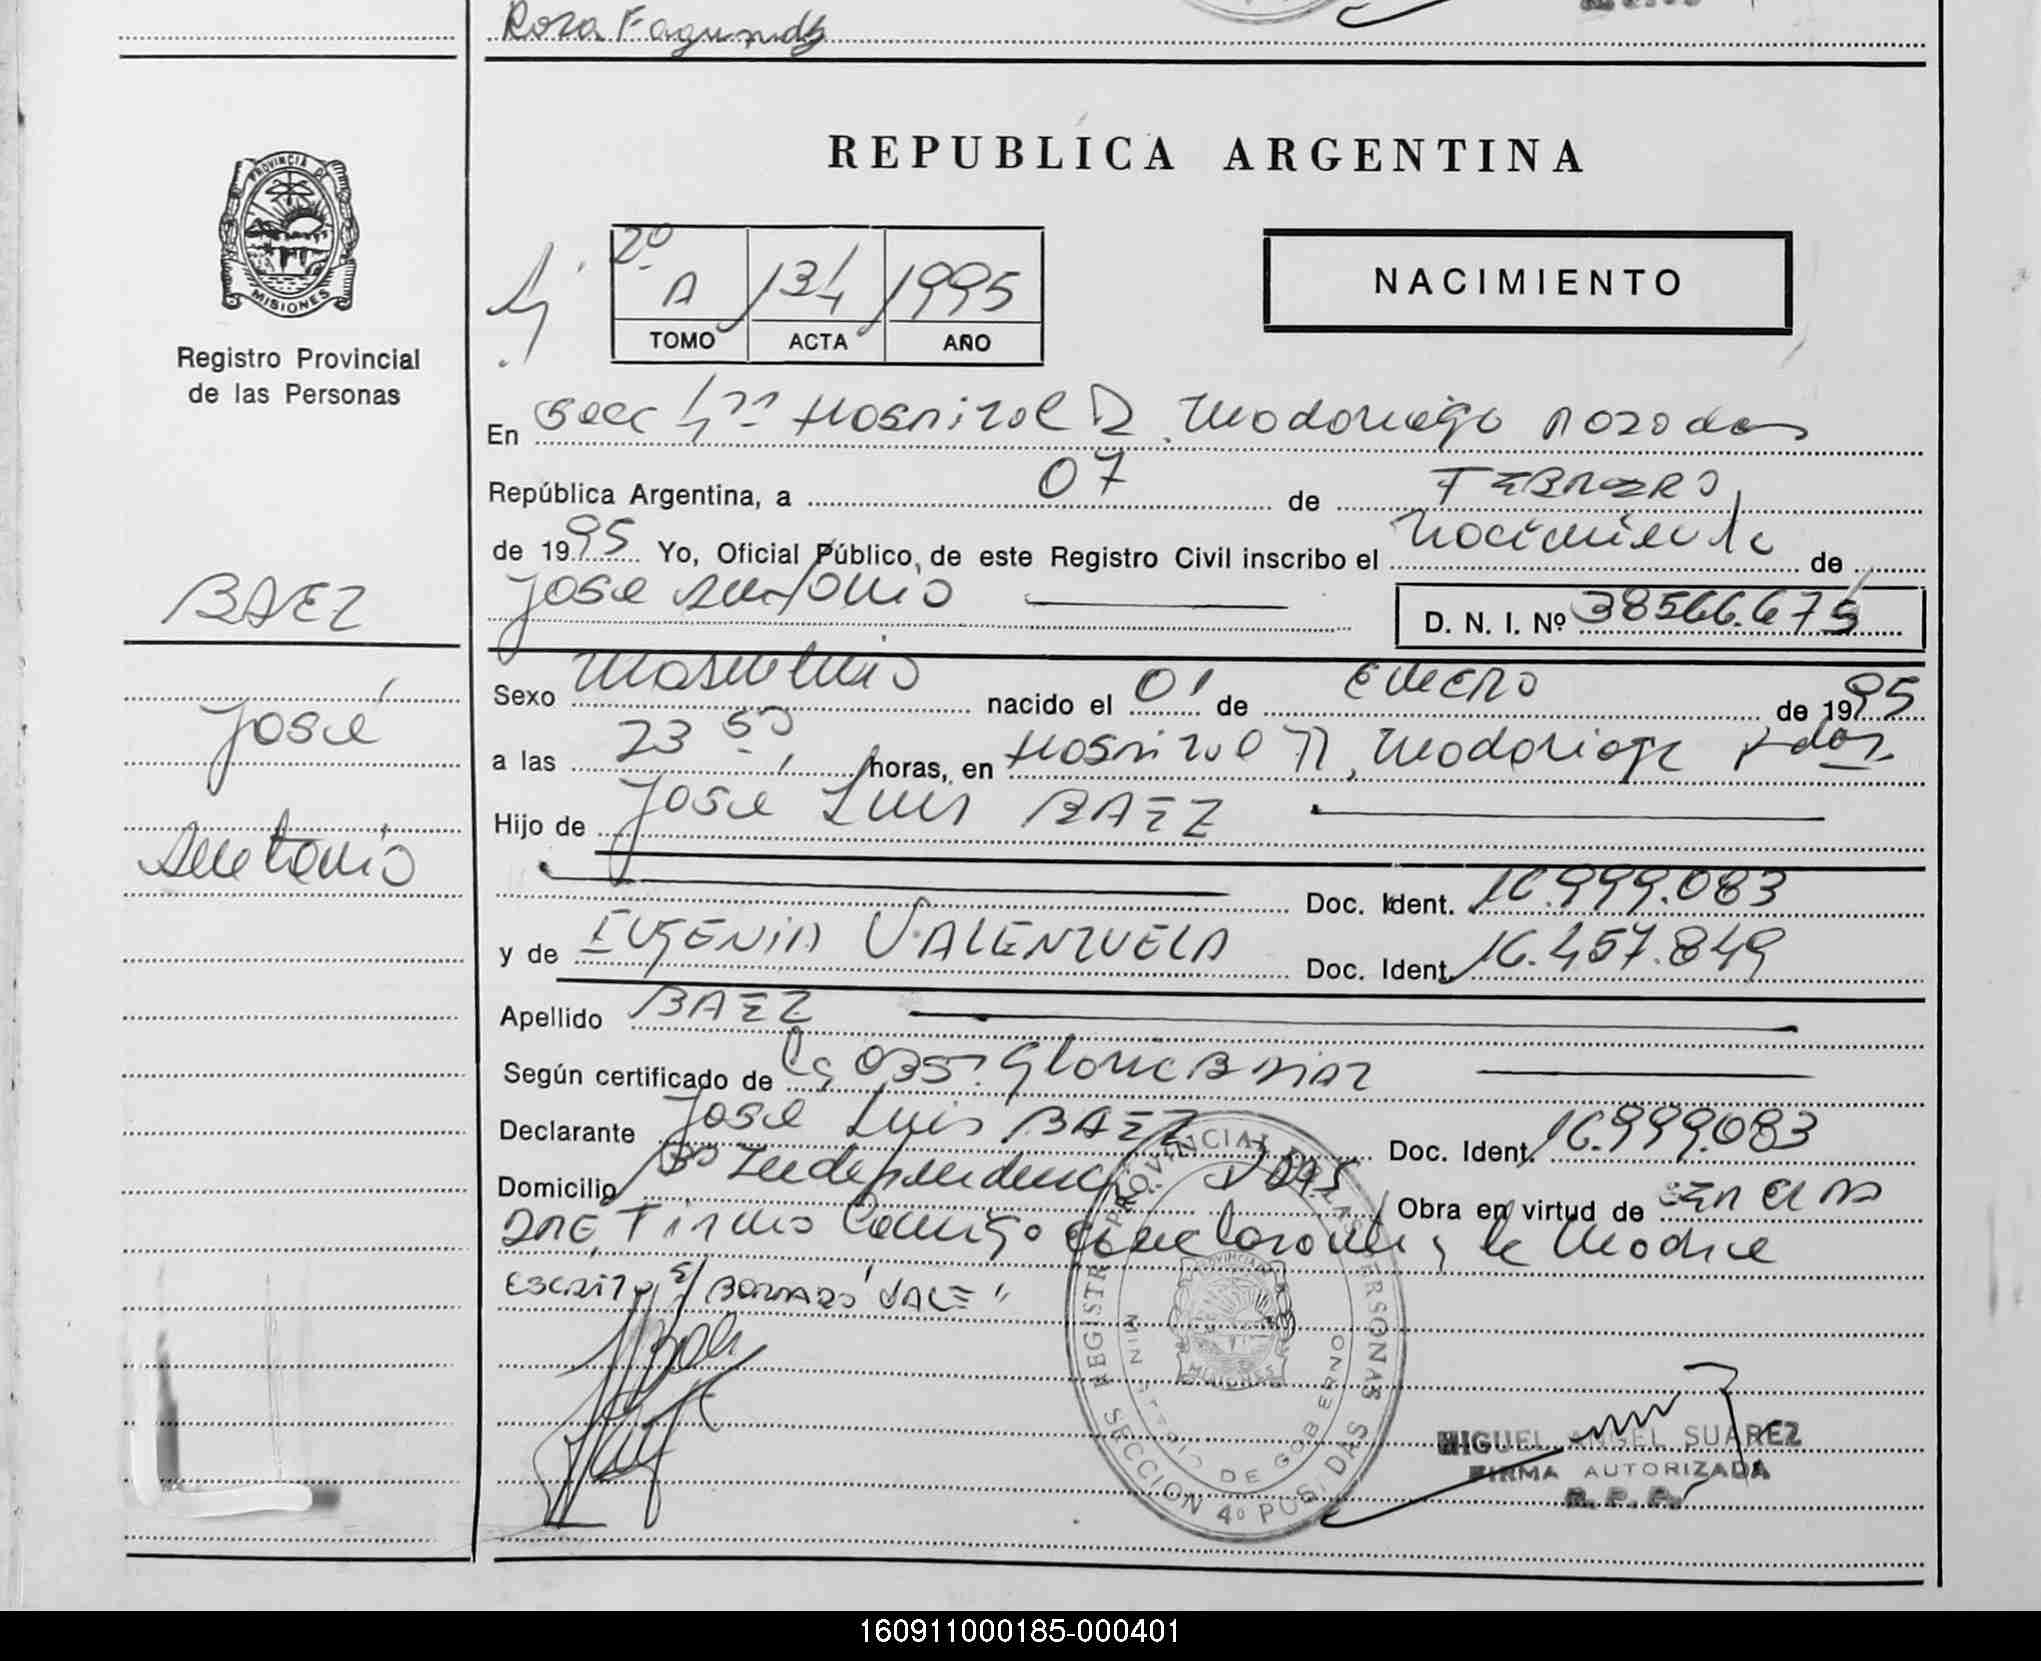 Rosa Fagundez
PROVINCIA DE
MISIONES
Registro Provincial
de las Personas
REPUBLICA ARGENTINA
2º
A 134 1995
TOMO ACTA AÑO
NACIMIENTO
En Secc 4ta Hospital R. Madariaga Posadas
República Argentina, a 07 de FEBRERO
de 1995 Yo, Oficial Público, de este Registro Civil inscribo el nacimiento de
José Antonio D. N. I. Nº 38566.675
BAEZ
José
Antonio
Sexo Masculino nacido el 01 de ENERO de 1995
a las 23 50 horas, en Hospital R. Madariaga Pdas.
Hijo de José Luis BAEZ
Doc. Ident. 16.999.083
y de EUGENIA VALENZUELA Doc. Ident. 16.457.849
Apellido BAEZ
Según certificado de la Obst. Gloria B DIAZ
Declarante José Luis BAEZ Doc. Ident. 16.999.083
Domicilio Bº Independencia Pdas Obra en virtud de SER EL PA
DRE, Firma Conmigo el declarante y la Madre
ESCRITO S/ BORRADO "VALE"
REGISTRO PROVINCIAL DE LAS PERSONAS
MINISTERIO DE GOBIERNO
SECCION 4º POSADAS
MISIONES
MIGUEL ANGEL SUAREZ
FIRMA AUTORIZADA
R. P. P.
160911000185-000401